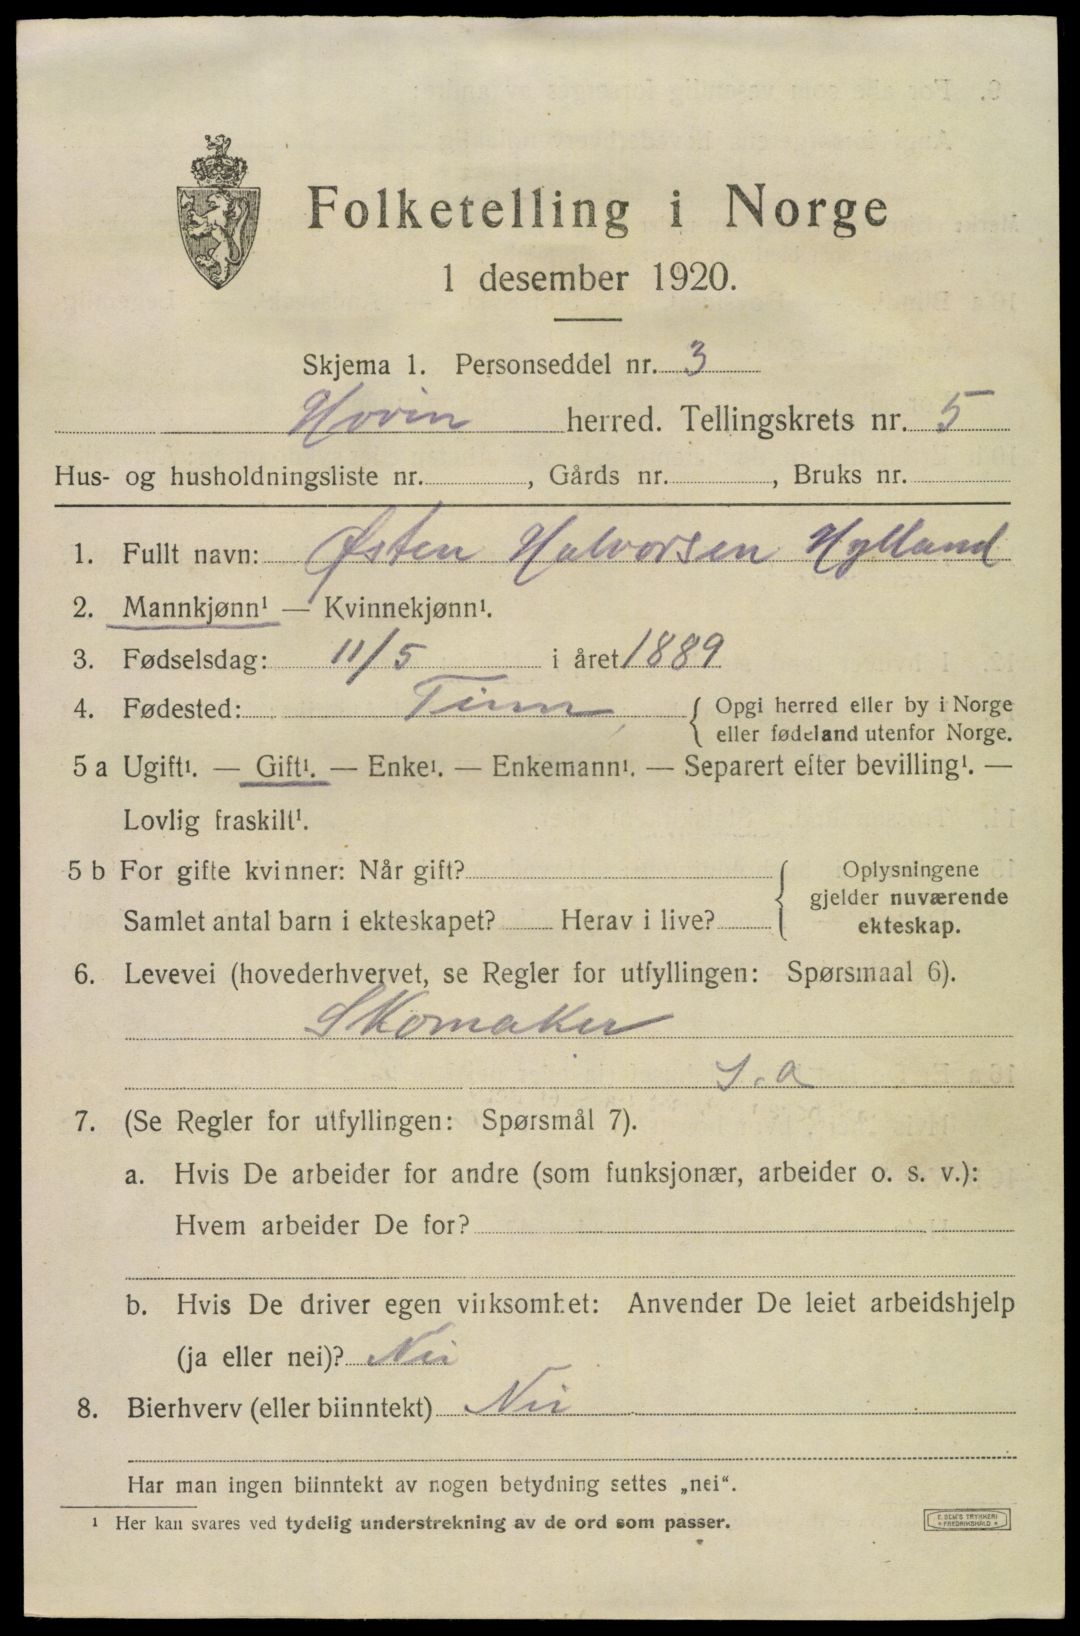 Folketelling i Norge
1 desember 1920.
Skjema 1. Personseddel nr. 3
Hovin herred. Tellingskrets nr. 5
Hus- og husholdningsliste nr. , Gårds nr. , Bruks nr.
1. Fullt navn: Østen Halvorsen Hylland
2. Mannkjønn¹ — Kvinnekjønn¹.
3. Fødselsdag: 11/5 i året 1889
4. Fødested: Tinn, { Opgi herred eller by i Norge
eller fødeland utenfor Norge.
5 a Ugift¹. — Gift¹. — Enke¹. — Enkemann¹. — Separert efter bevilling¹. —
Lovlig fraskilt¹.
5 b For gifte kvinner: Når gift? { Oplysningene
gjelder nuværende
Samlet antal barn i ekteskapet? Herav i live?
ekteskap.
6. Levevei (hovederhvervet, se Regler for utfyllingen: Spørsmaal 6).
Skomaker
s. a
7. (Se Regler for utfyllingen: Spørsmål 7).
a. Hvis De arbeider for andre (som funksjonær, arbeider o. s. v.):
Hvem arbeider De for?
b. Hvis De driver egen virksomhet: Anvender De leiet arbeidshjelp
(ja eller nei)? Nei
8. Bierhverv (eller biinntekt) Nei
Har man ingen biinntekt av nogen betydning settes „nei“.
¹ Her kan svares ved tydelig understrekning av de ord som passer.
E. SEM'S TRYKKERI
* FREDRIKSHALD *